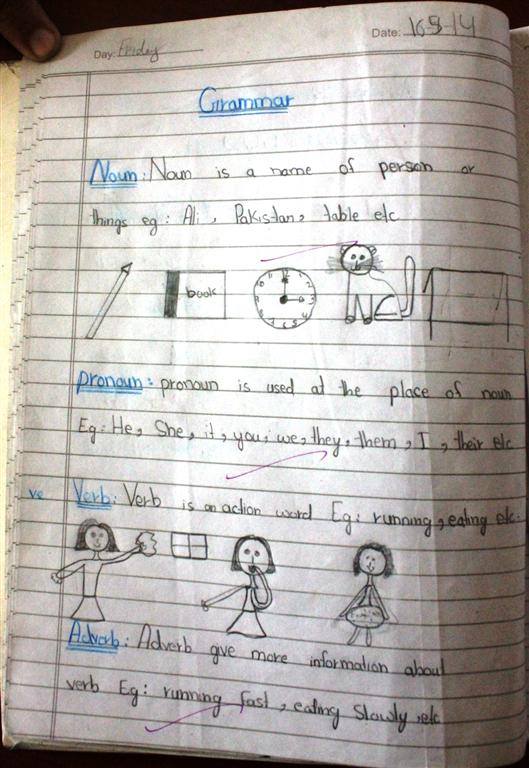 Day: Friday
Date: 16-5-14
Grammar
Noun: Noun is a name of person or
things eg: Ali, Pakistan, table etc
book
pronoun: pronoun is used at the place of noun
Eg: He, She, it, you, we, they, them, I, their etc
Verb: Verb is an action word Eg: running, eating etc.
Adverb: Adverb give more information about
verb Eg: running fast, eating slowly, etc